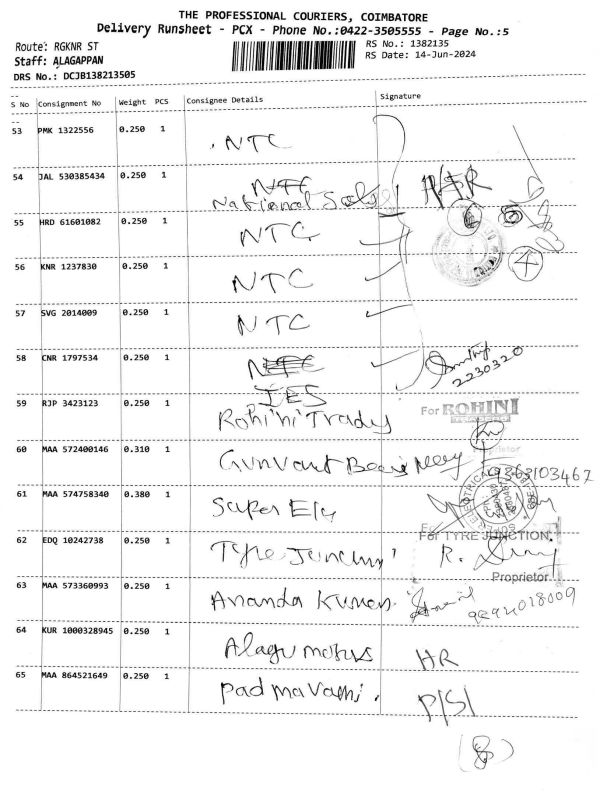 THE PROFESSIONAL COURIERS, COIMBATORE
Delivery Runsheet - PCX - Phone No.:0422-3505555 - Page No.:5
Route: RGKNR ST
RS No.: 1382135
Staff: ALAGAPPAN
RS Date: 14-Jun-2024
DRS No.: DCJB138213505
S No Consignment No Weight PCS Consignee Details Signature
53 PMK 1322556 0.250 1 NTC
54 JAL 530385434 0.250 1 NTC
National Sales
55 HRD 61601082 0.250 1 NTC
4
56 KNR 1237830 0.250 1 NTC
57 SVG 2014009 0.250 1 NTC
58 CNR 1797534 0.250 1 NTC
IES
2230320
59 RJP 3423123 0.250 1 Rohini Trady
For ROHINI
Proprietor
60 MAA 572400146 0.310 1 Gunvant
9363103462
61 MAA 574758340 0.380 1 Super Ele
62 EDQ 10242738 0.250 1 Tyre Junction
For TYRE JUNCTION
R.
Proprietor
63 MAA 573360993 0.250 1 Ananda Kumar
64 KUR 1000328945 0.250 1 Alagu motors HR
65 MAA 864521649 0.250 1 Padmavathi P/S/
(8)